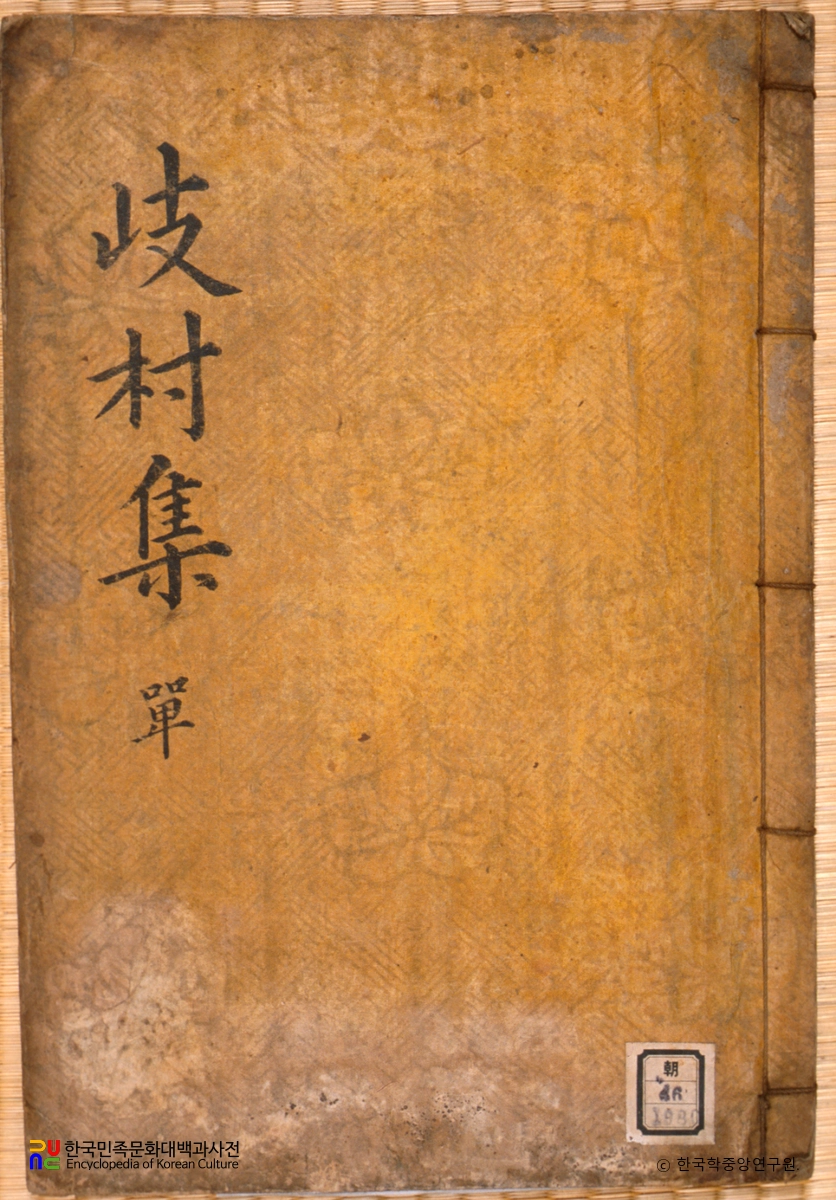 歧村集 單
朝
한국민족문화대백과사전
Encyclopedia of Korean Culture
© 한국학중앙연구원